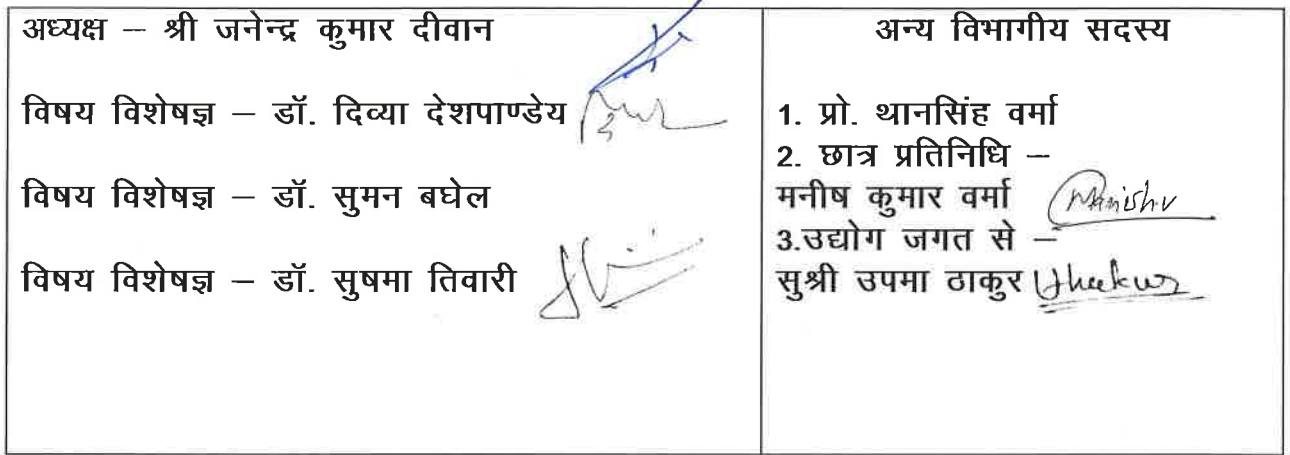 अध्यक्ष – श्री जनेन्द्र कुमार दीवान
विषय विशेषज्ञ – डॉ. दिव्या देशपाण्डेय
विषय विशेषज्ञ – डॉ. सुमन बघेल
विषय विशेषज्ञ – डॉ. सुषमा तिवारी
अन्य विभागीय सदस्य
1. प्रो. थानसिंह वर्मा
2. छात्र प्रतिनिधि –
मनीष कुमार वर्मा Manishv
3.उद्योग जगत से –
सुश्री उपमा ठाकुर